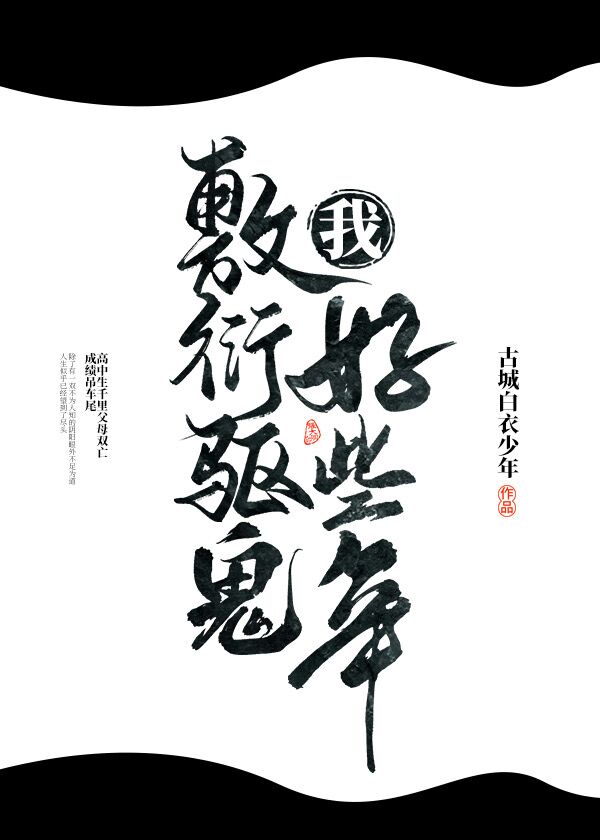 古城白衣少年
作品
我好些年
敷衍驱鬼
高中生千里父母双亡
成绩吊车尾
除了有一双不为人知的阴阳眼外不足为道
人生似乎已经望到了尽头